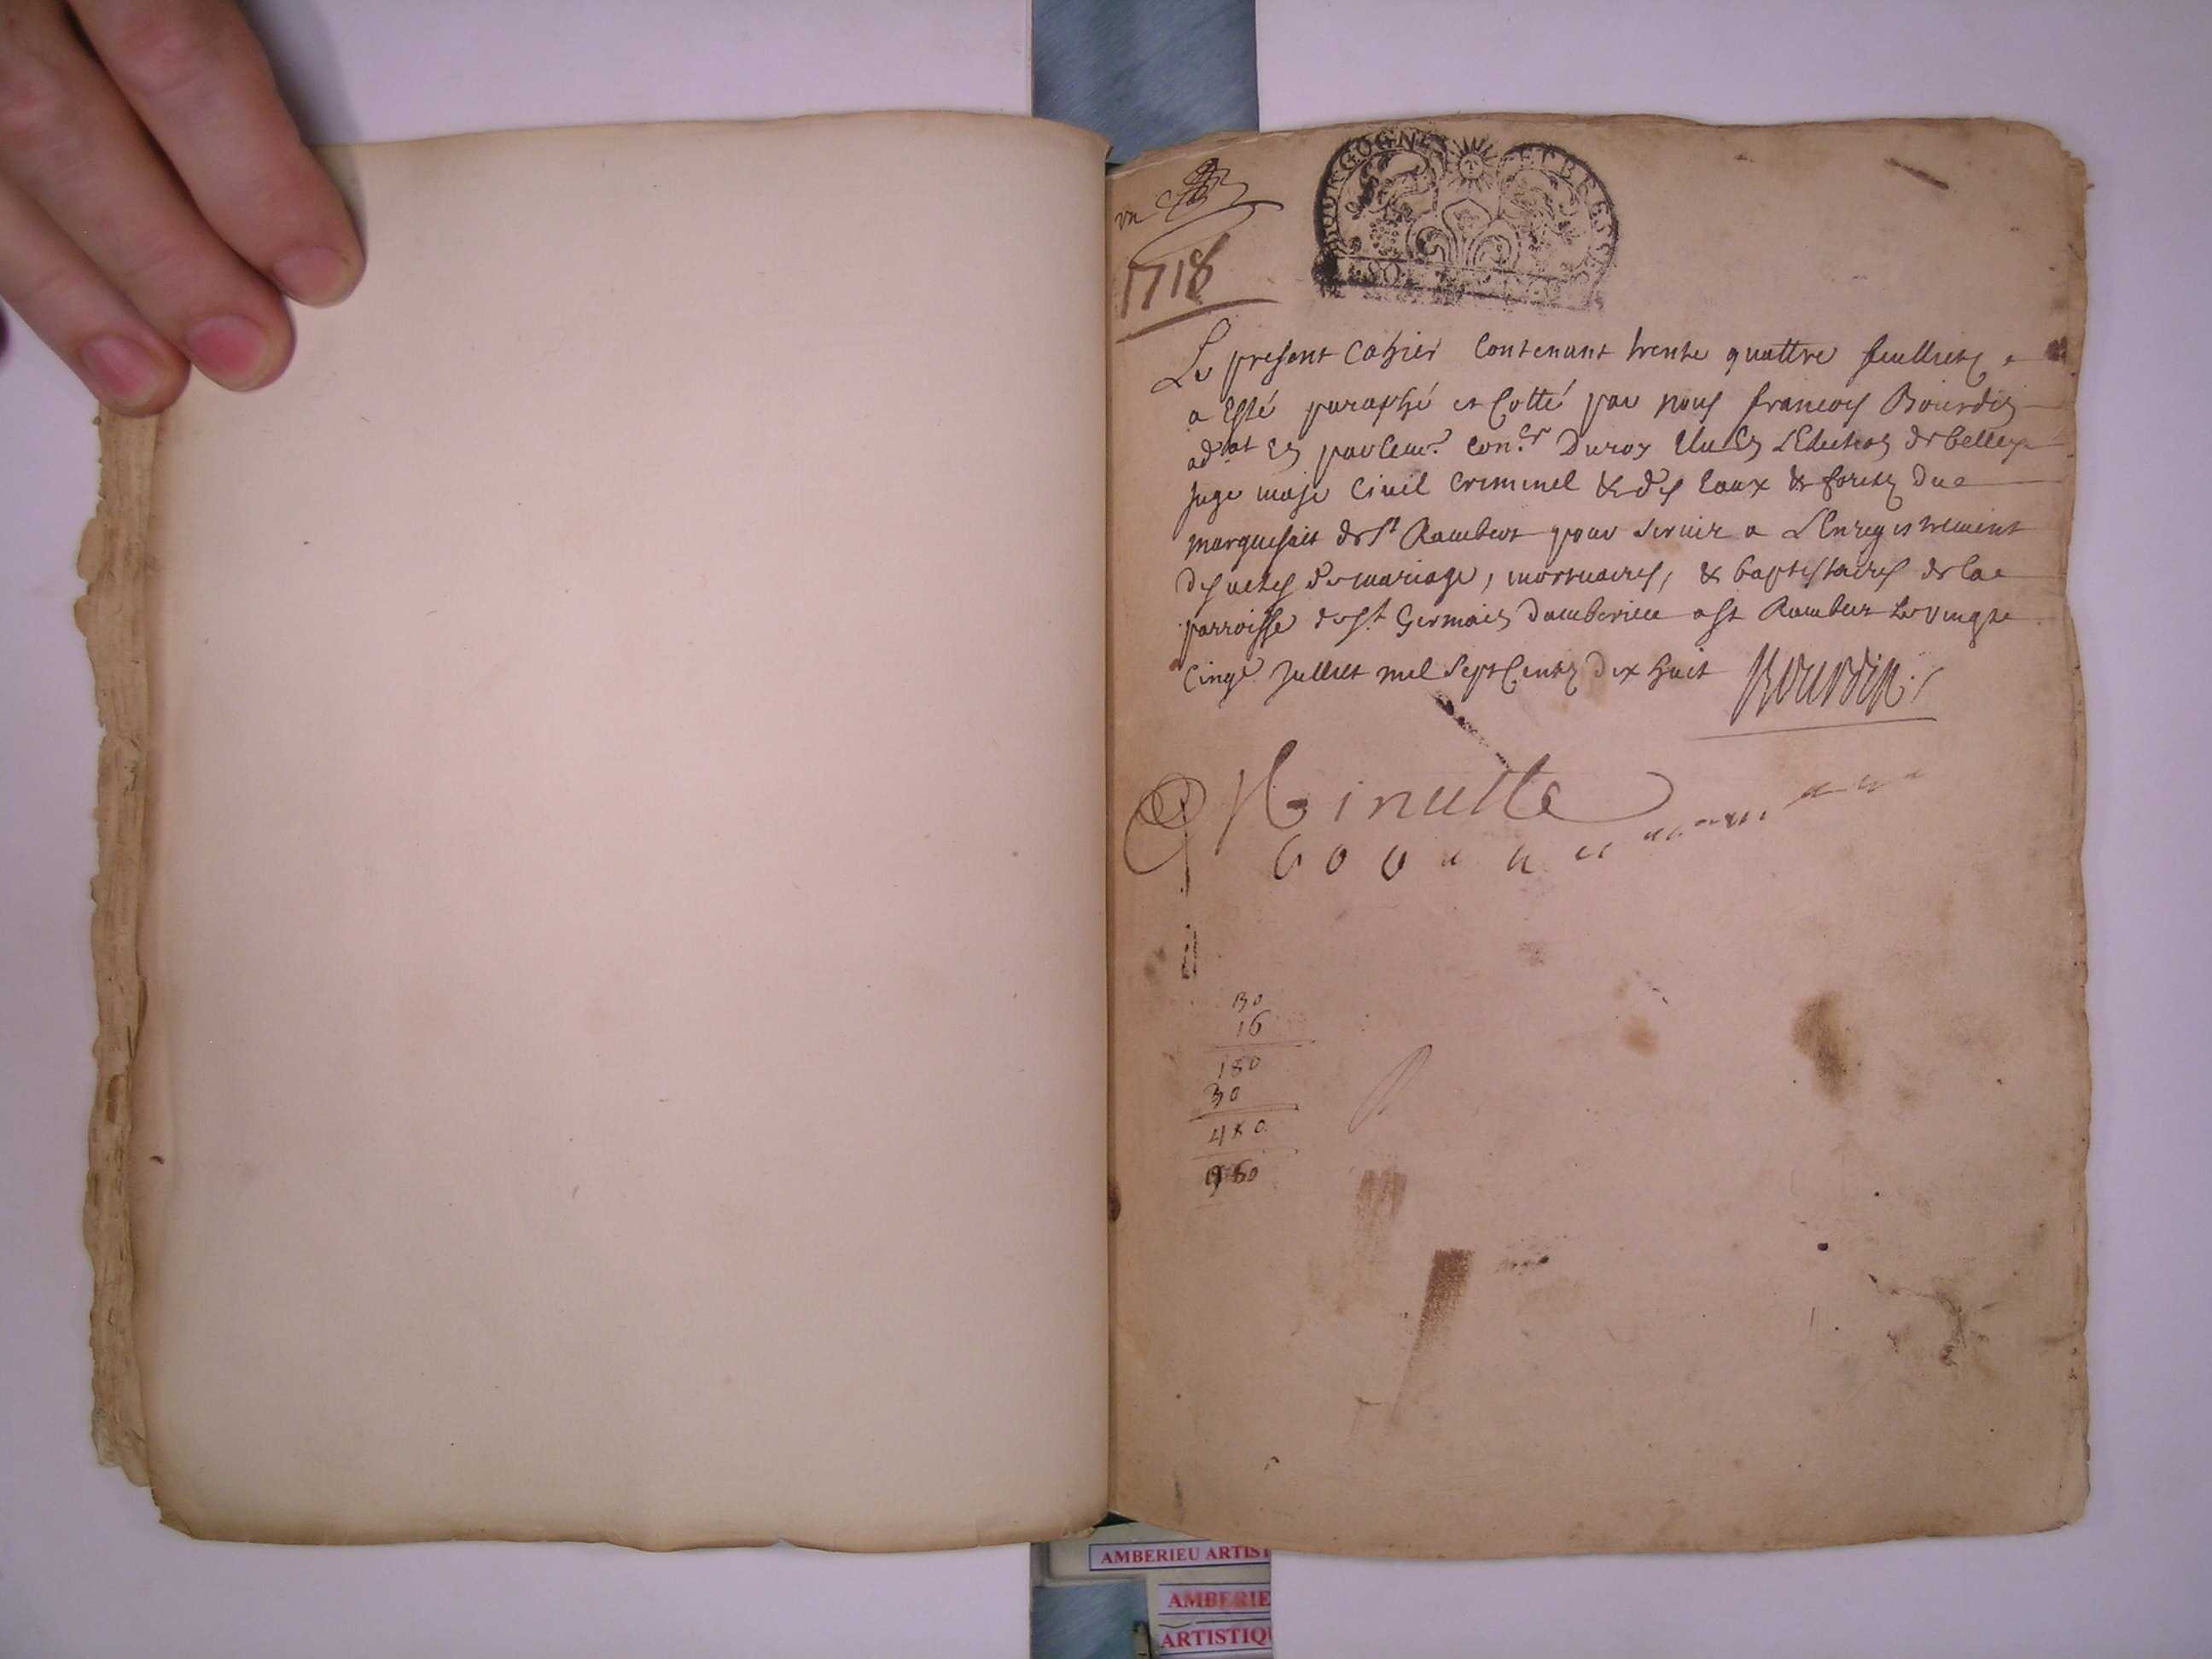 un
BOURGOGNE ET BRESSE
1718
Le present Cahier Contenant trente quattre feuillietz
a Esté paraphé et Cotté par nous francois Bourdin
adat En parlemt. coner Du roy Elu En L'Election de belley
Juge maje Civil Criminel & des Eaux & forestz du
marquisait de St Rambert pour servir a L'Enregistrement
des actes de mariage, mortuaires, & baptistaires de la
parroisse de St Germain Damberieu a St Rambert Le vingt
Cinqe Juillet mil Sept Centz dix huit Bourdin
Minutte
30
16
180
30
480
960
AMBERIEU ARTIST
AMBERIE
ARTISTIQU